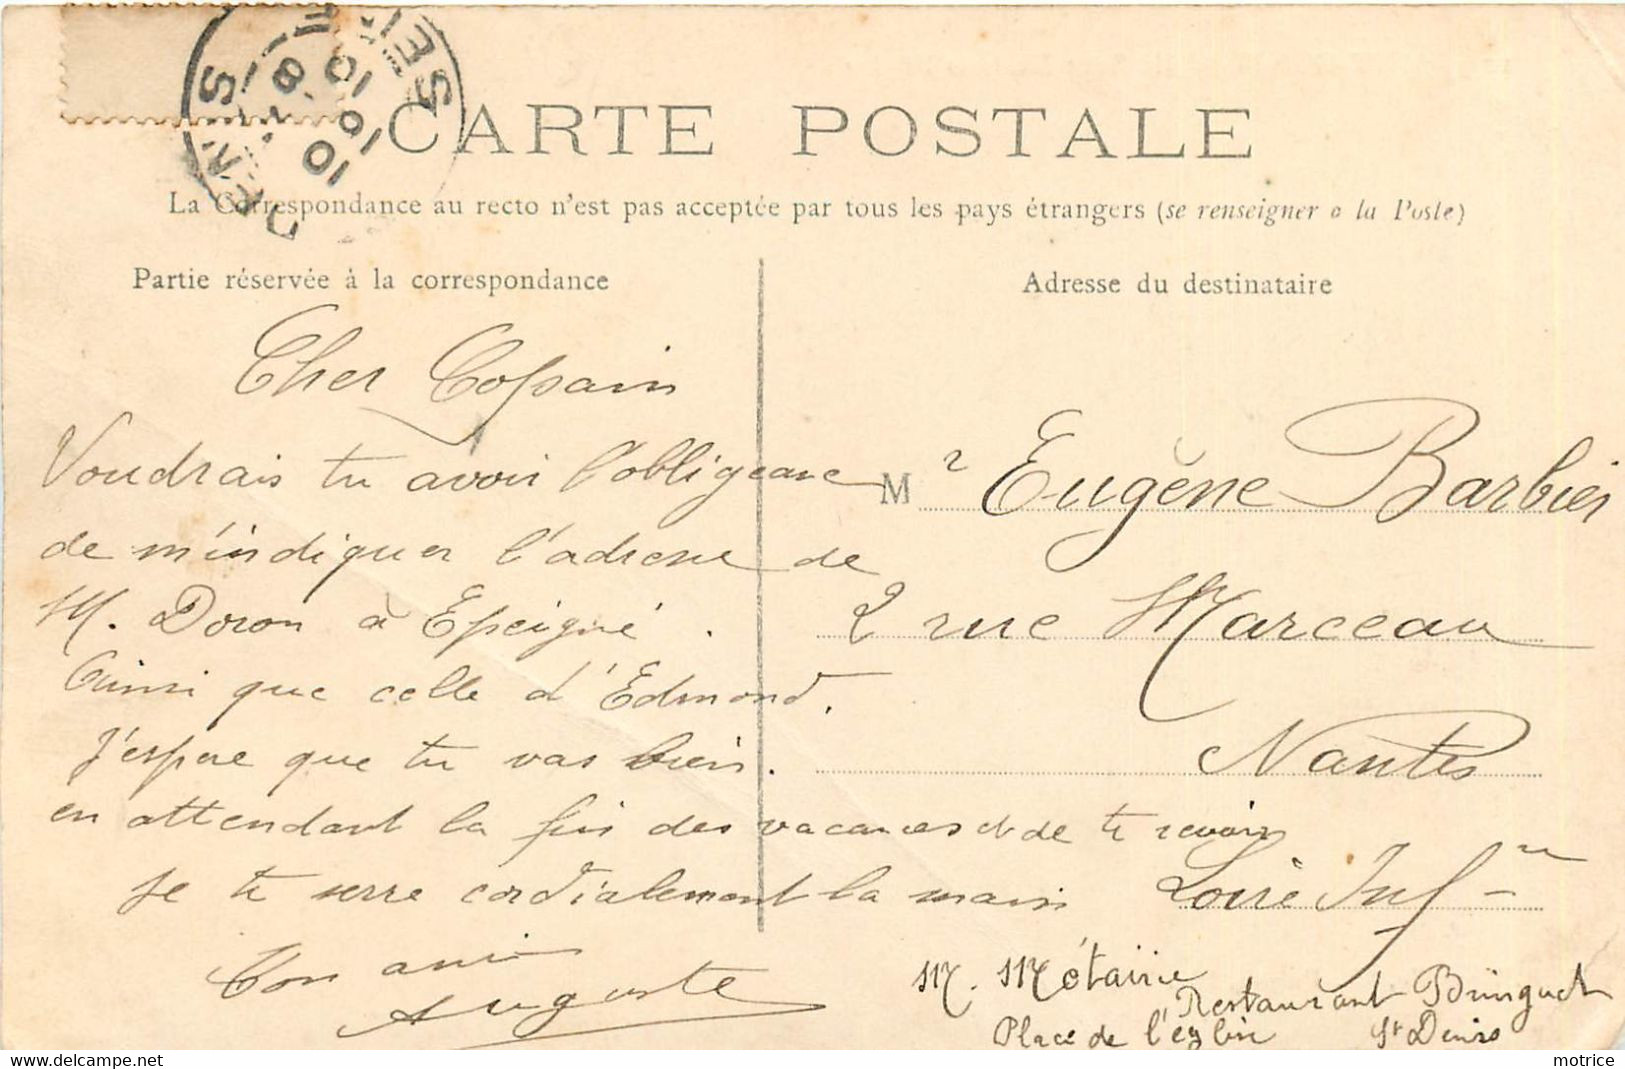 SEINE
DENIS
10
10
8
10
CARTE POSTALE
La Correspondance au recto n'est pas acceptée par tous les pays étrangers (se renseigner à la Poste)
Partie réservée à la correspondance
Cher Copain
Voudrais tu avoir l'obligeance
de m'indiquer l'adresse de
M. Doron à Epeigné.
Ainsi que celle d'Edmond.
J'espère que tu vas bien.
en attendant la fin des vacances et de te revoir
je te serre cordialement la main
Ton ami
Auguste
Adresse du destinataire
Mr Eugène Barbier
2 rue Marceau
Nantes
Loire Infre
M. Métairie
Restaurant
Place de l'église St Denis
delcampe.net
motrice